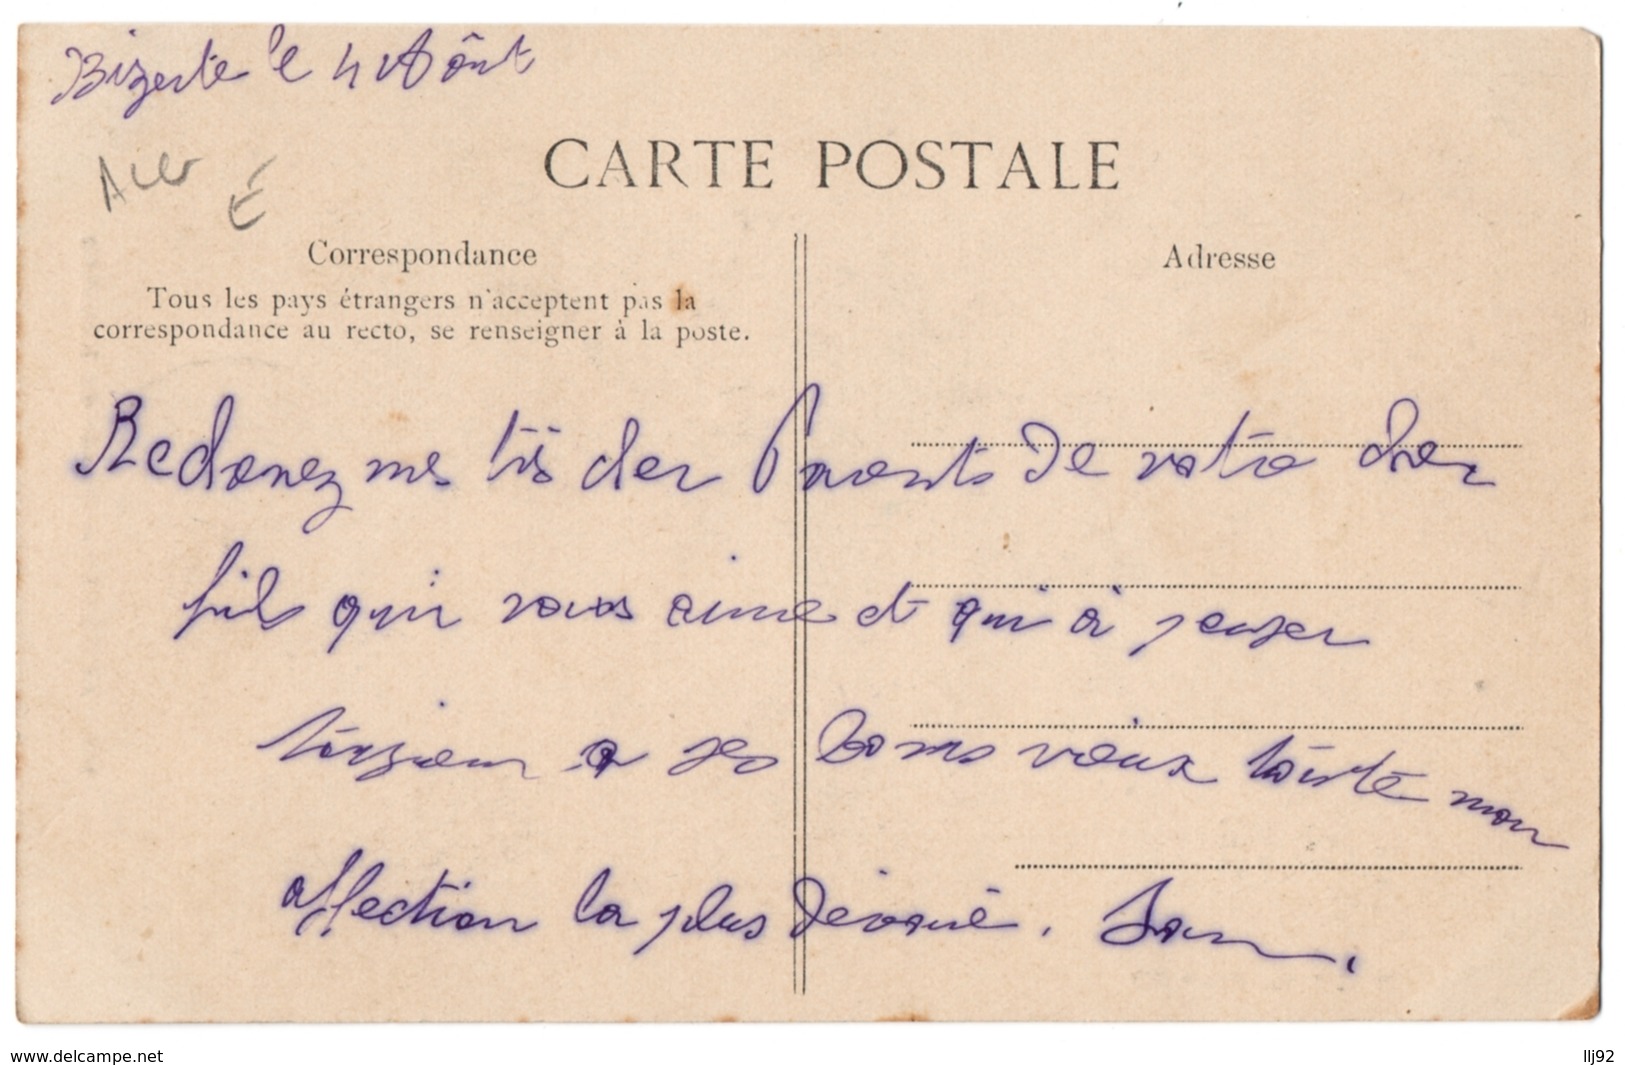 Bizerte le 4 Aôut
CARTE POSTALE
Correspondance
Adresse
Tous les pays étrangers n'acceptent pas la
correspondance au recto, se renseigner à la poste.
Recevez mes très cher Parents de votre cher
fils qui vous aime et qui à penser
toujours a ses bons vieux toute mon
affection la plus dévoué.
www.delcampe.net
llj92